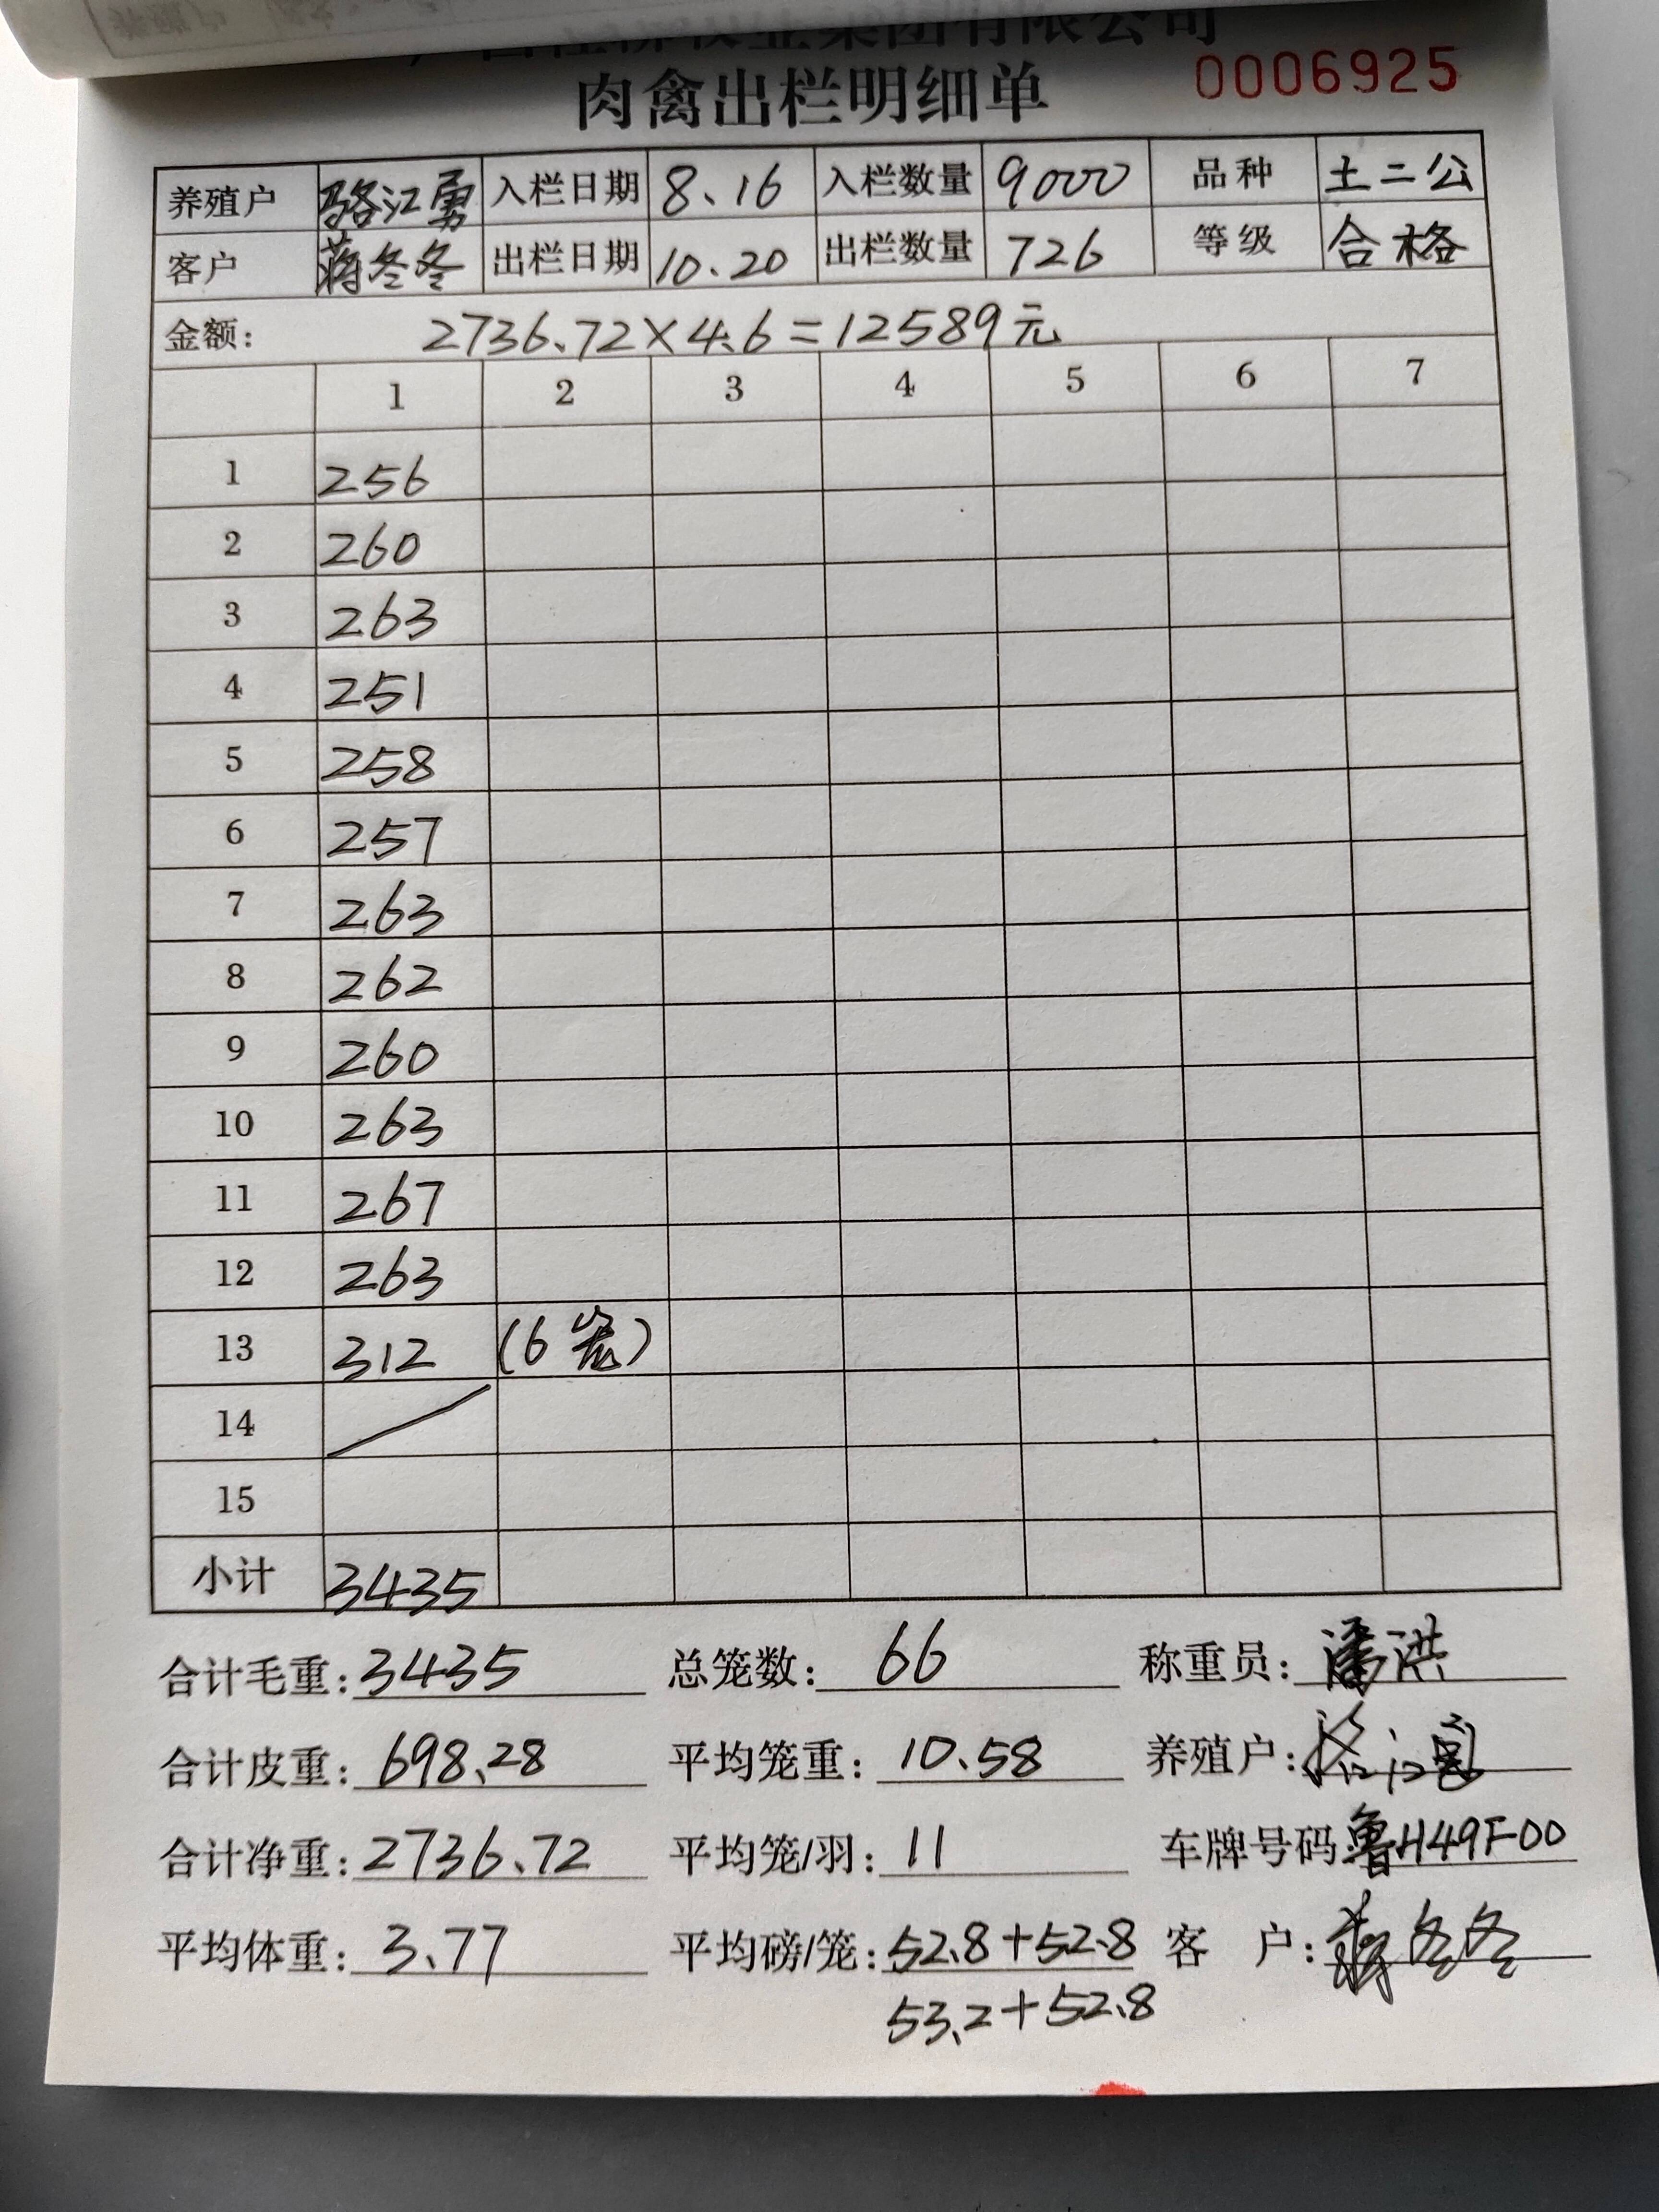 集团有限公司
肉禽出栏明细单 0006925
养殖户 骆江勇 入栏日期 8.16 入栏数量 9000 品种 土二公
客户 蒋冬冬 出栏日期 10.20 出栏数量 726 等级 合格
金额: 2736.72×4.6=12589元
1 2 3 4 5 6 7
1 256
2 260
3 263
4 251
5 258
6 257
7 263
8 262
9 260
10 263
11 267
12 263
13 312 (6笼)
14
15
小计 3435
合计毛重: 3435 总笼数: 66 称重员: 潘洪
合计皮重: 698.28 平均笼重: 10.58 养殖户: 骆江勇
合计净重: 2736.72 平均笼/羽: 11 车牌号码 鲁H49F00
平均体重: 3.77 平均磅/笼: 52.8+52.8 客 户: 蒋冬冬
53.2+52.8